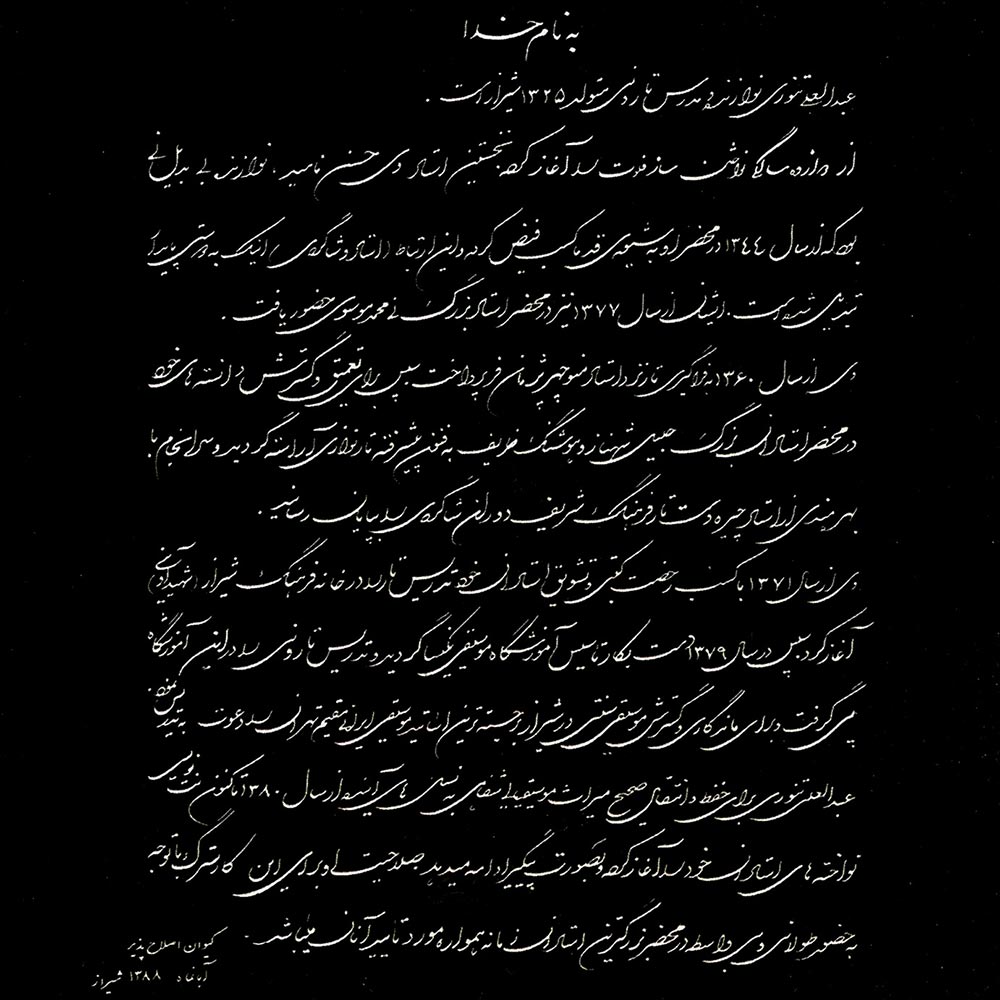 به نام خدا
عبدالعلی تنوری نوازنده و مدرس تار و نی متولد ۱۳۲۵ شیراز است .
از دوازده سالگی نواختن ساز فلوت را آغاز کرد نخستین استاد وی حسن ناهید ، نوازنده بی بدیل نی
بود که از سال ۱۳۴۴ در محضر او به شیوه ی قدما کسب فیض کرده و این ارتباط (استاد و شاگردی) اینک به دوستی پایدار
تبدیل شده است . ایشان از سال ۱۳۷۷ نیز در محضر استاد بزرگ نی محمد موسوی حضور یافت .
وی از سال ۱۳۶۰ به فراگیری تار نزد استاد منوچهر پژمان فر پرداخت سپس برای تعمیق و گسترش دانسته های خود
در محضر استادان بزرگ جلیل شهناز و هوشنگ ظریف به فنون پیشرفته تار نوازی آراسته گردید و سرانجام با
بهره مندی از استاد چیره دست تار فرهنگ شریف دوران شاگردی را بپایان رسانید .
وی از سال ۱۳۷۱ با کسب رخصت کتبی و تشویق استادان خود تدریس تار را در خانه فرهنگ شیراز (شهید آوینی)
آغاز کرد سپس در سال ۱۳۷۹ دست بکار تاسیس آموزشگاه موسیقی نکیسا گردید و تدریس تار و نی را در این آموزشگاه
پی گرفت و برای ماندگاری و گسترش موسیقی سنتی در شیراز برجسته ترین اساتید موسیقی ایرانی مقیم تهران را دعوت به تدریس نمود .
عبدالعلی تنوری برای حفظ و انتقال صحیح میراث موسیقیایی شفاهی به نسل های آینده از سال ۱۳۸۰ تا کنون نت نویسی
نواخته های استادان خود را آغاز کرده و بصورت پیگیر ادامه میدهد صلاحیت او برای این کار سترگ با توجه
به حضور طولانی و بی واسطه در محضر بزرگترین استادان زمانه همواره مورد تایید آنان میباشد .
کیوان اصلاح پذیر
آبانماه ۱۳۸۸ شیراز